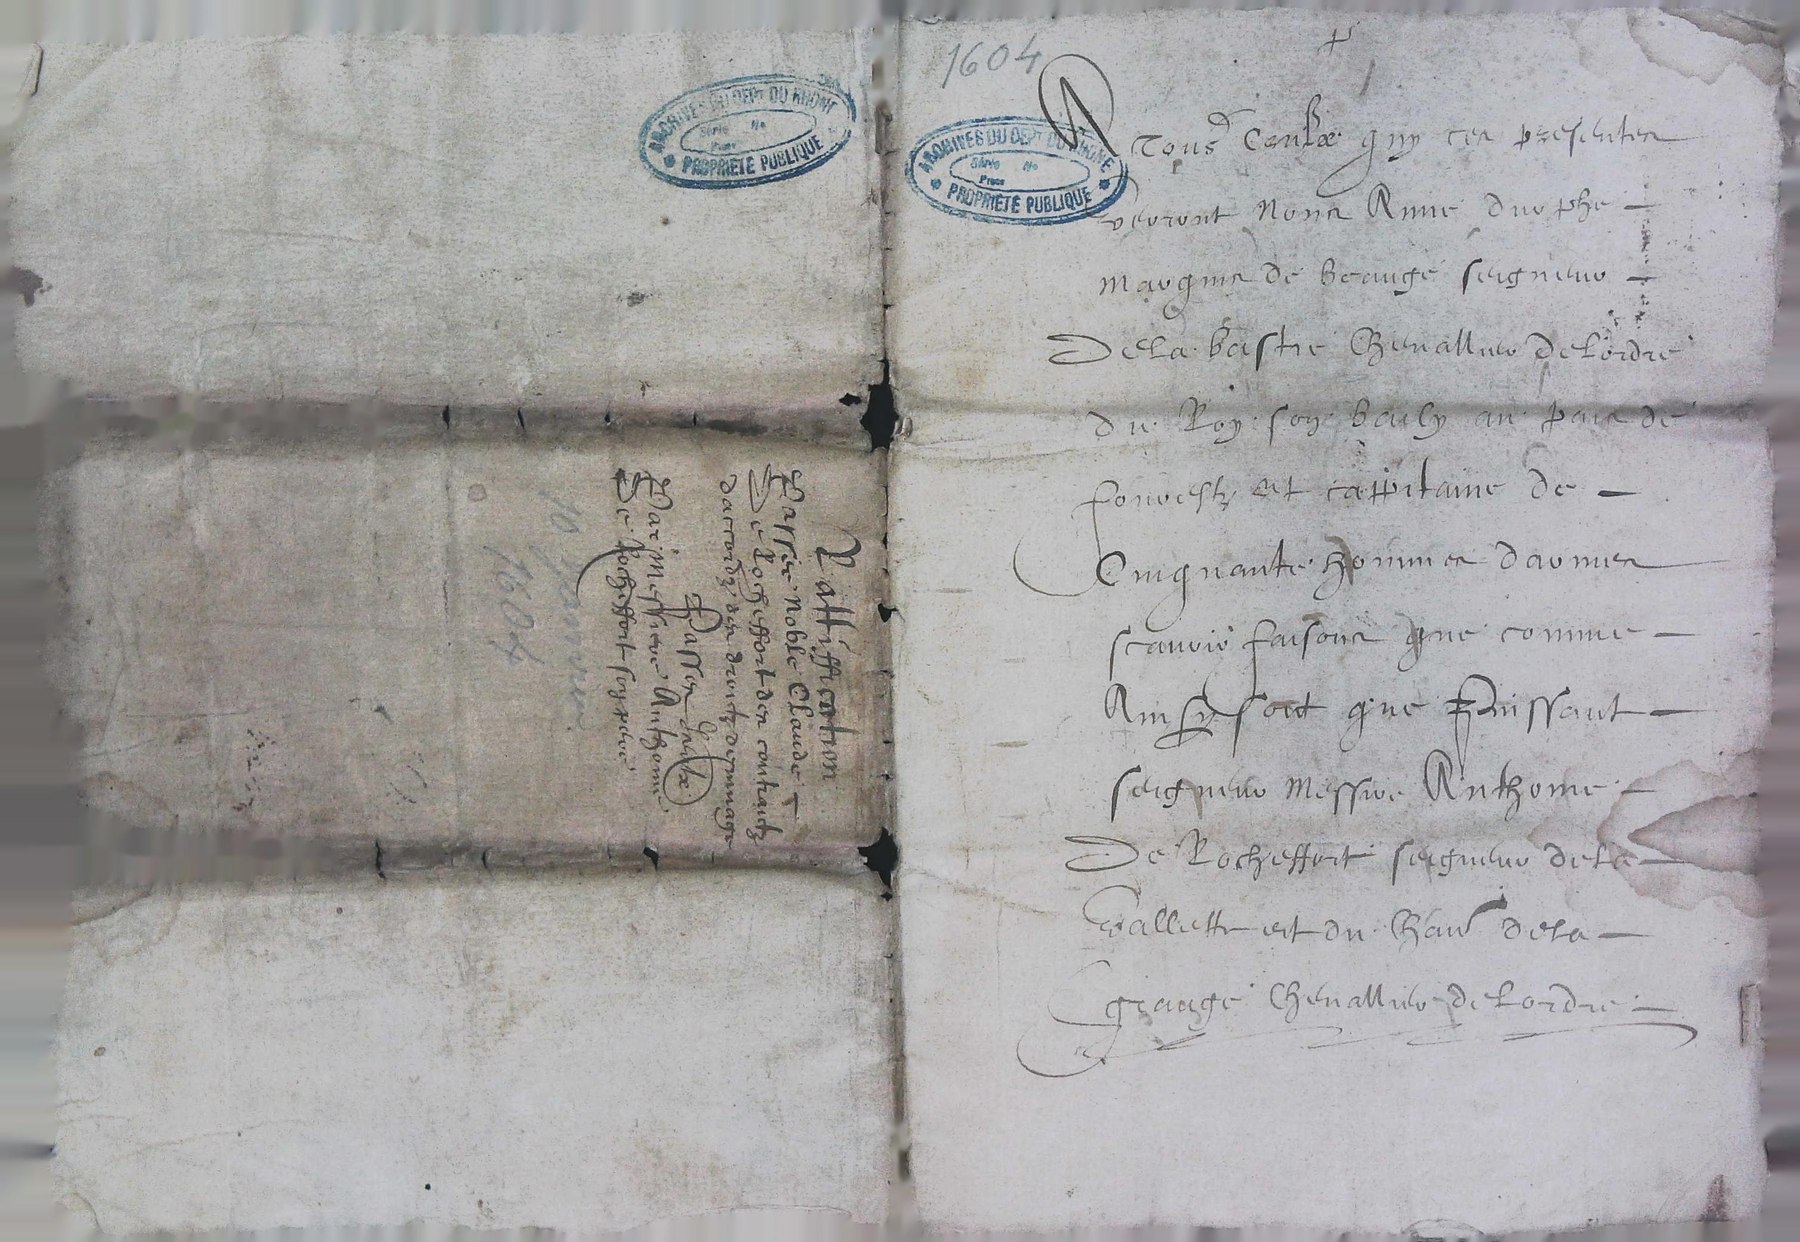 ARCHIVES DU DEPT DU RHONE
Série No
Pièce
PROPRIÉTÉ PUBLIQUE
Rattiffication
Passée Noble Claude
De Rocheffort des contractz
daccordz des droictz de
Passez
Par Messire Anthoine
De Rocheffort son pere
10 Janvier
1604
1604
ARCHIVES DU DEPT DU RHONE
Série No
Pièce
PROPRIÉTÉ PUBLIQUE
A Tous Ceulx quy ces presentes
verront Nous Anne durphe
marquis de beauge seigneur
De la bastie Chevallier de Lordre
du Roy son baily au pais de
forrestz et cappitaine de
Cinquante hommes darmes
scavoir faisons que comme
Ainsy soit que Puissant
seigneur Messire Anthoine
De Rocheffort seigneur de la
Vallette et du de la
grange Chevallier de Lordre